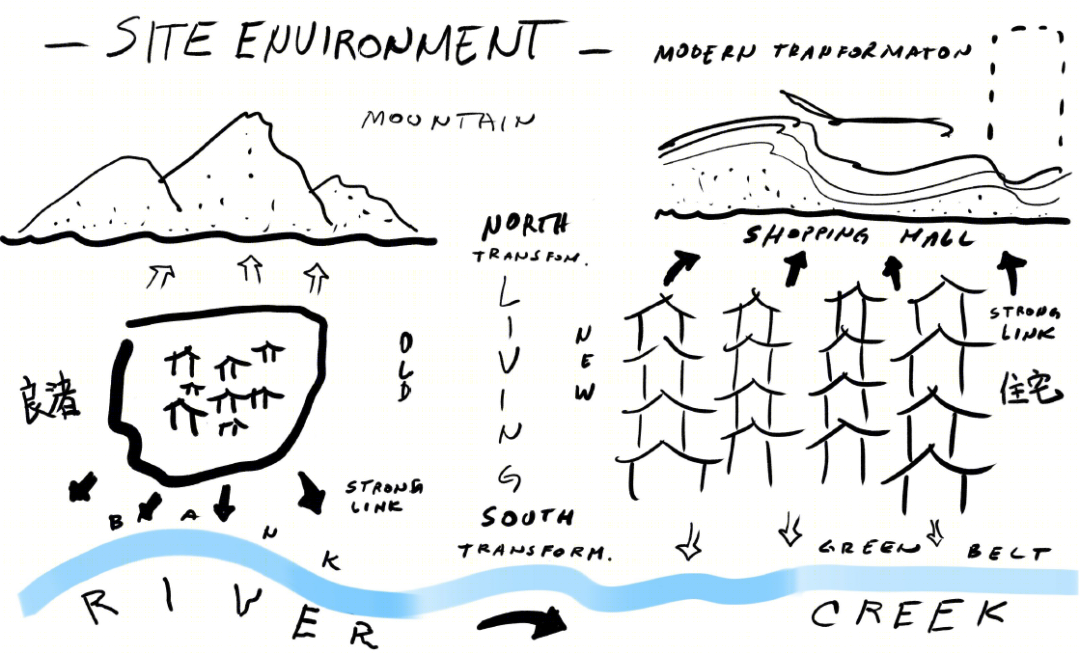 — SITE ENVIRONMENT —
MODERN TRANFORMATON
MOUNTAIN
NORTH
TRANSFOM.
SHOPPING MALL
LIVING
OLD
NEW
STRONG
LINK
良渚
住宅
STRONG
LINK
SOUTH
TRANSFORM.
BANK
GREEN BELT
RIVER
CREEK